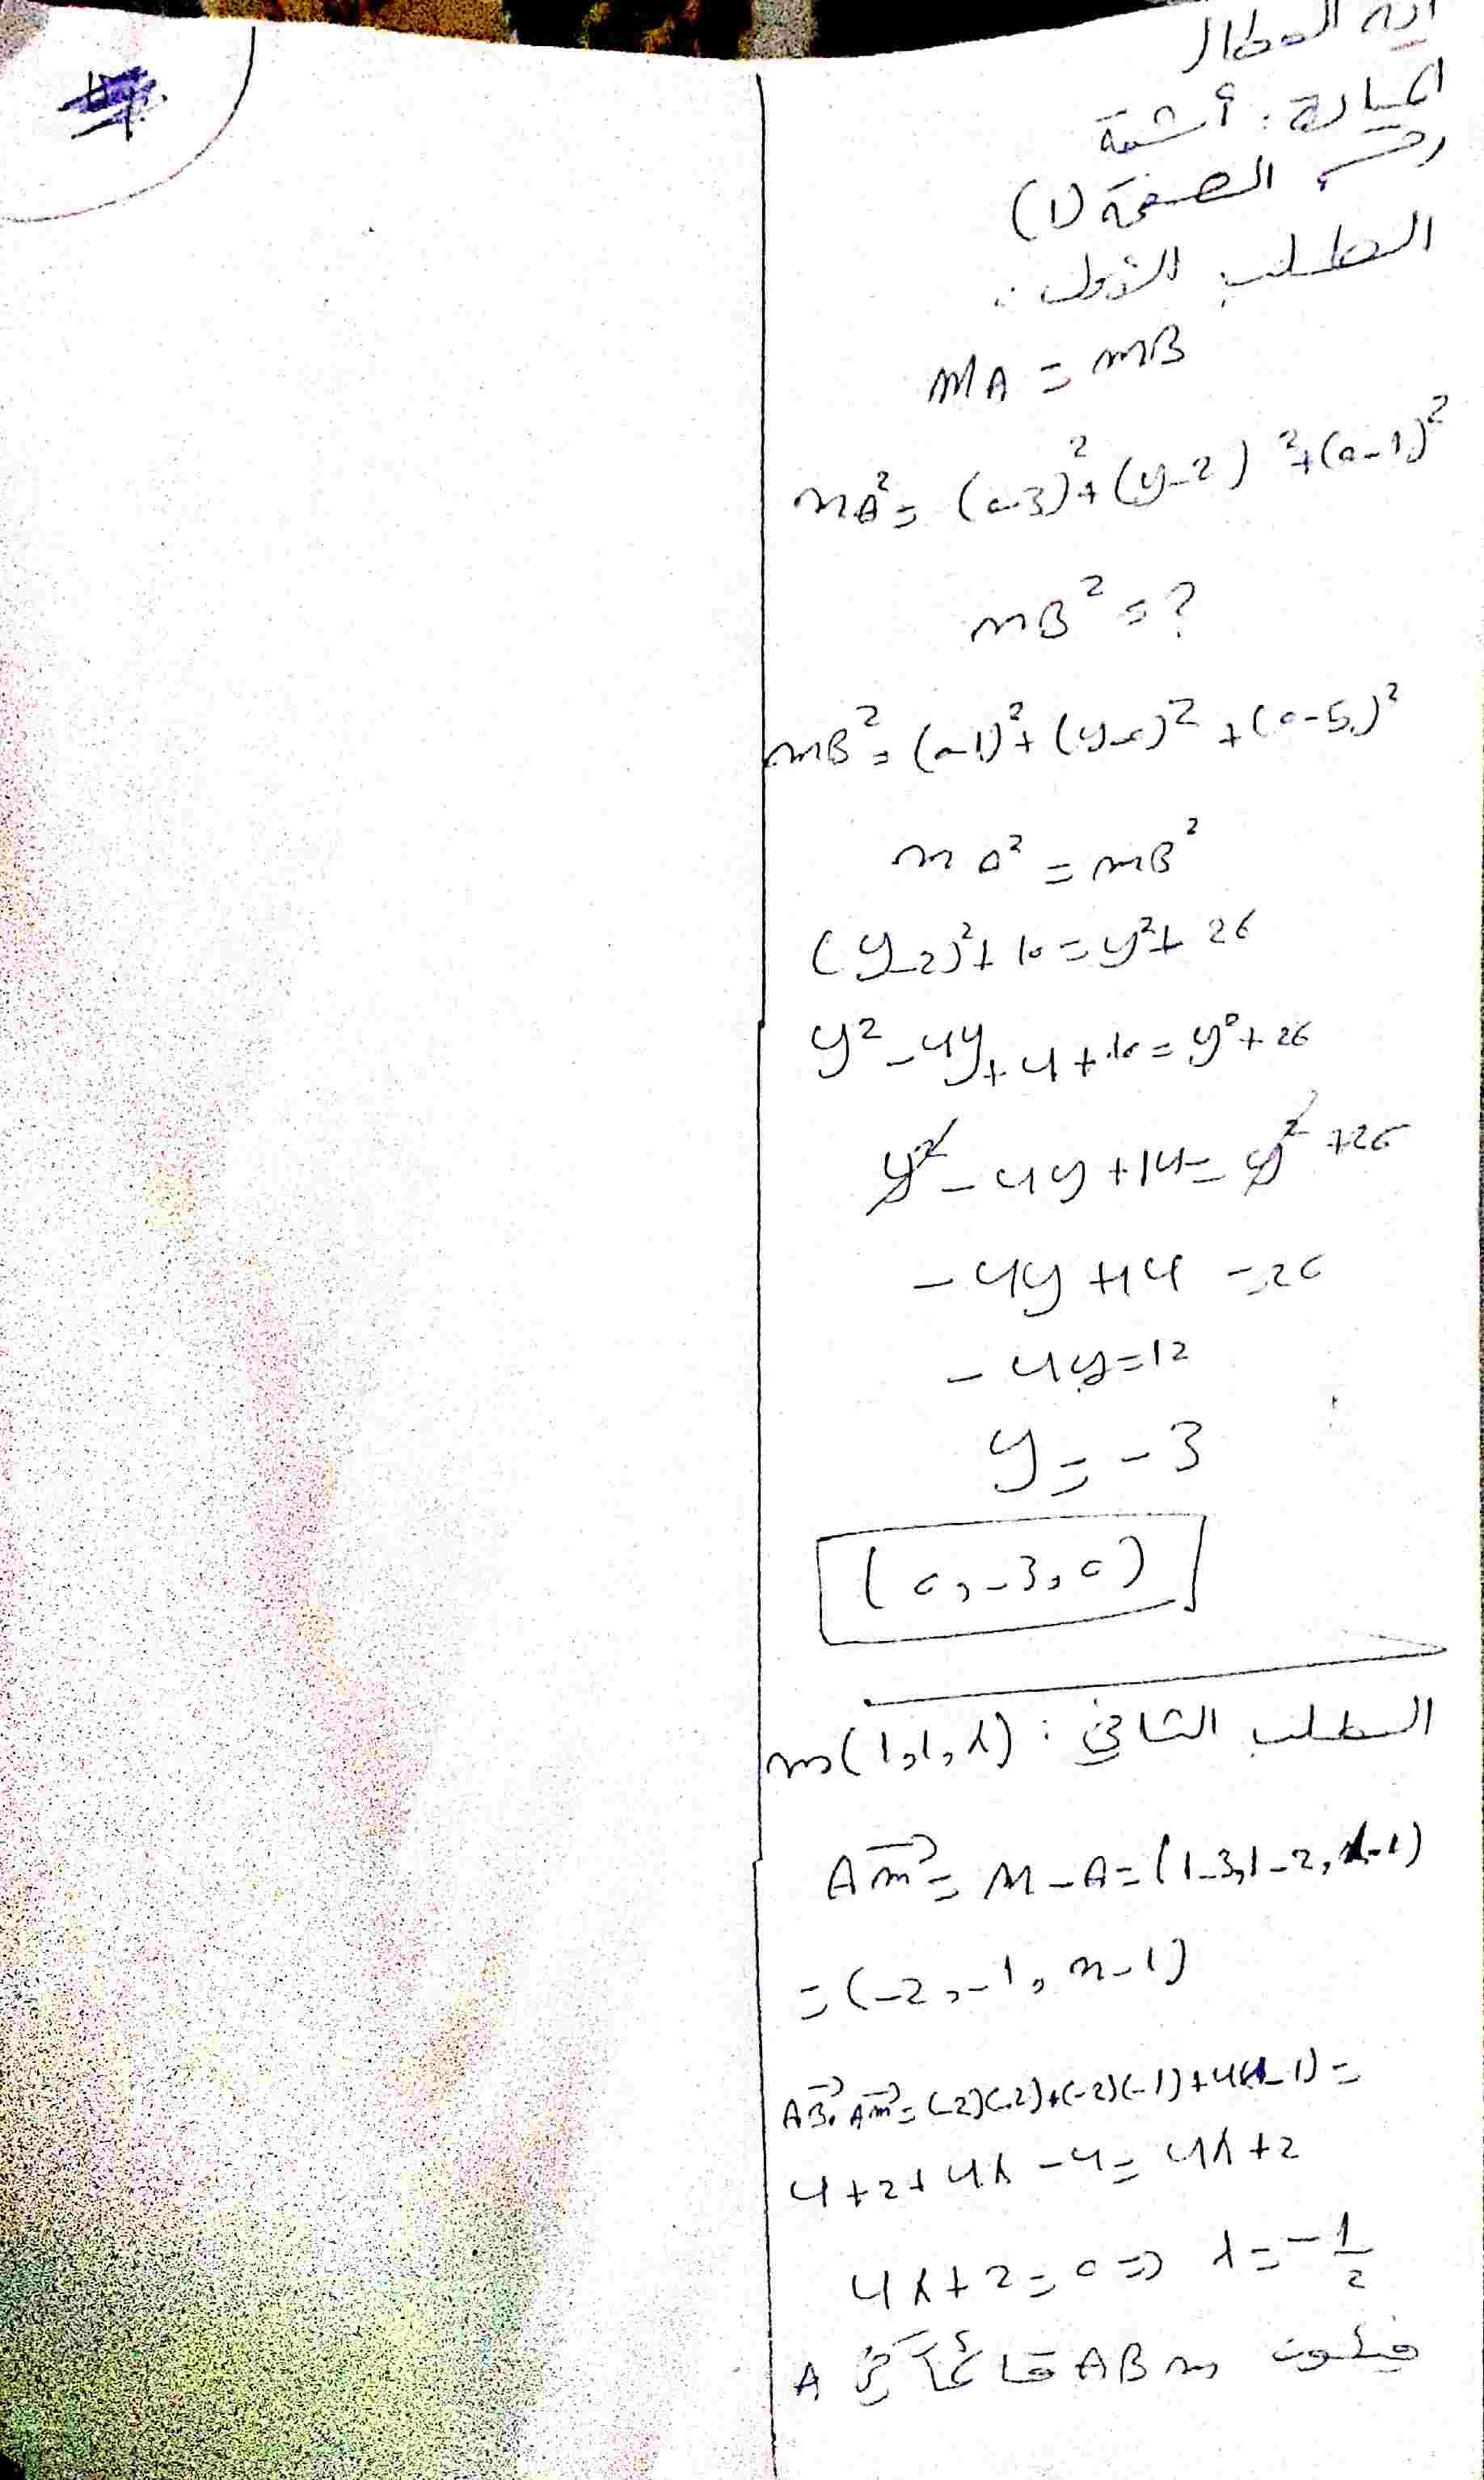 المادة: أشعة
رقم الصفحة (1)
الطلب الأول:
MA = mB
mA² = (0-3)² + (y-2)² + (0-1)²
mB² = ?
mB² = (0-1)² + (y-0)² + (0-5)²
mA² = mB²
(y-2)² + 10 = y² + 26
y² - 4y + 4 + 10 = y² + 26
y² - 4y + 14 = y² + 26
- 4y + 14 = 26
- 4y = 12
y = - 3
(0, -3, 0)
الطلب الثاني: m(1,1,λ)
Am = M - A = (1-3, 1-2, λ-1)
= (-2, -1, λ-1)
AB . Am = (-2)(-2) + (-2)(-1) + 4(λ-1) =
4 + 2 + 4λ - 4 = 4λ + 2
4λ + 2 = 0 => λ = - 1/2
فيكون ABm قائماً في A